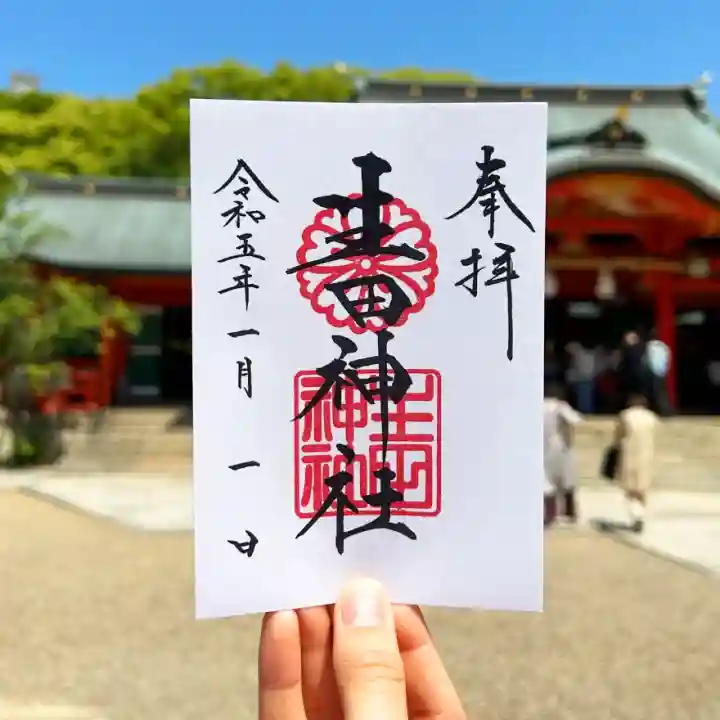 奉拝
生田神社
令和五年一月一日
生田
神社